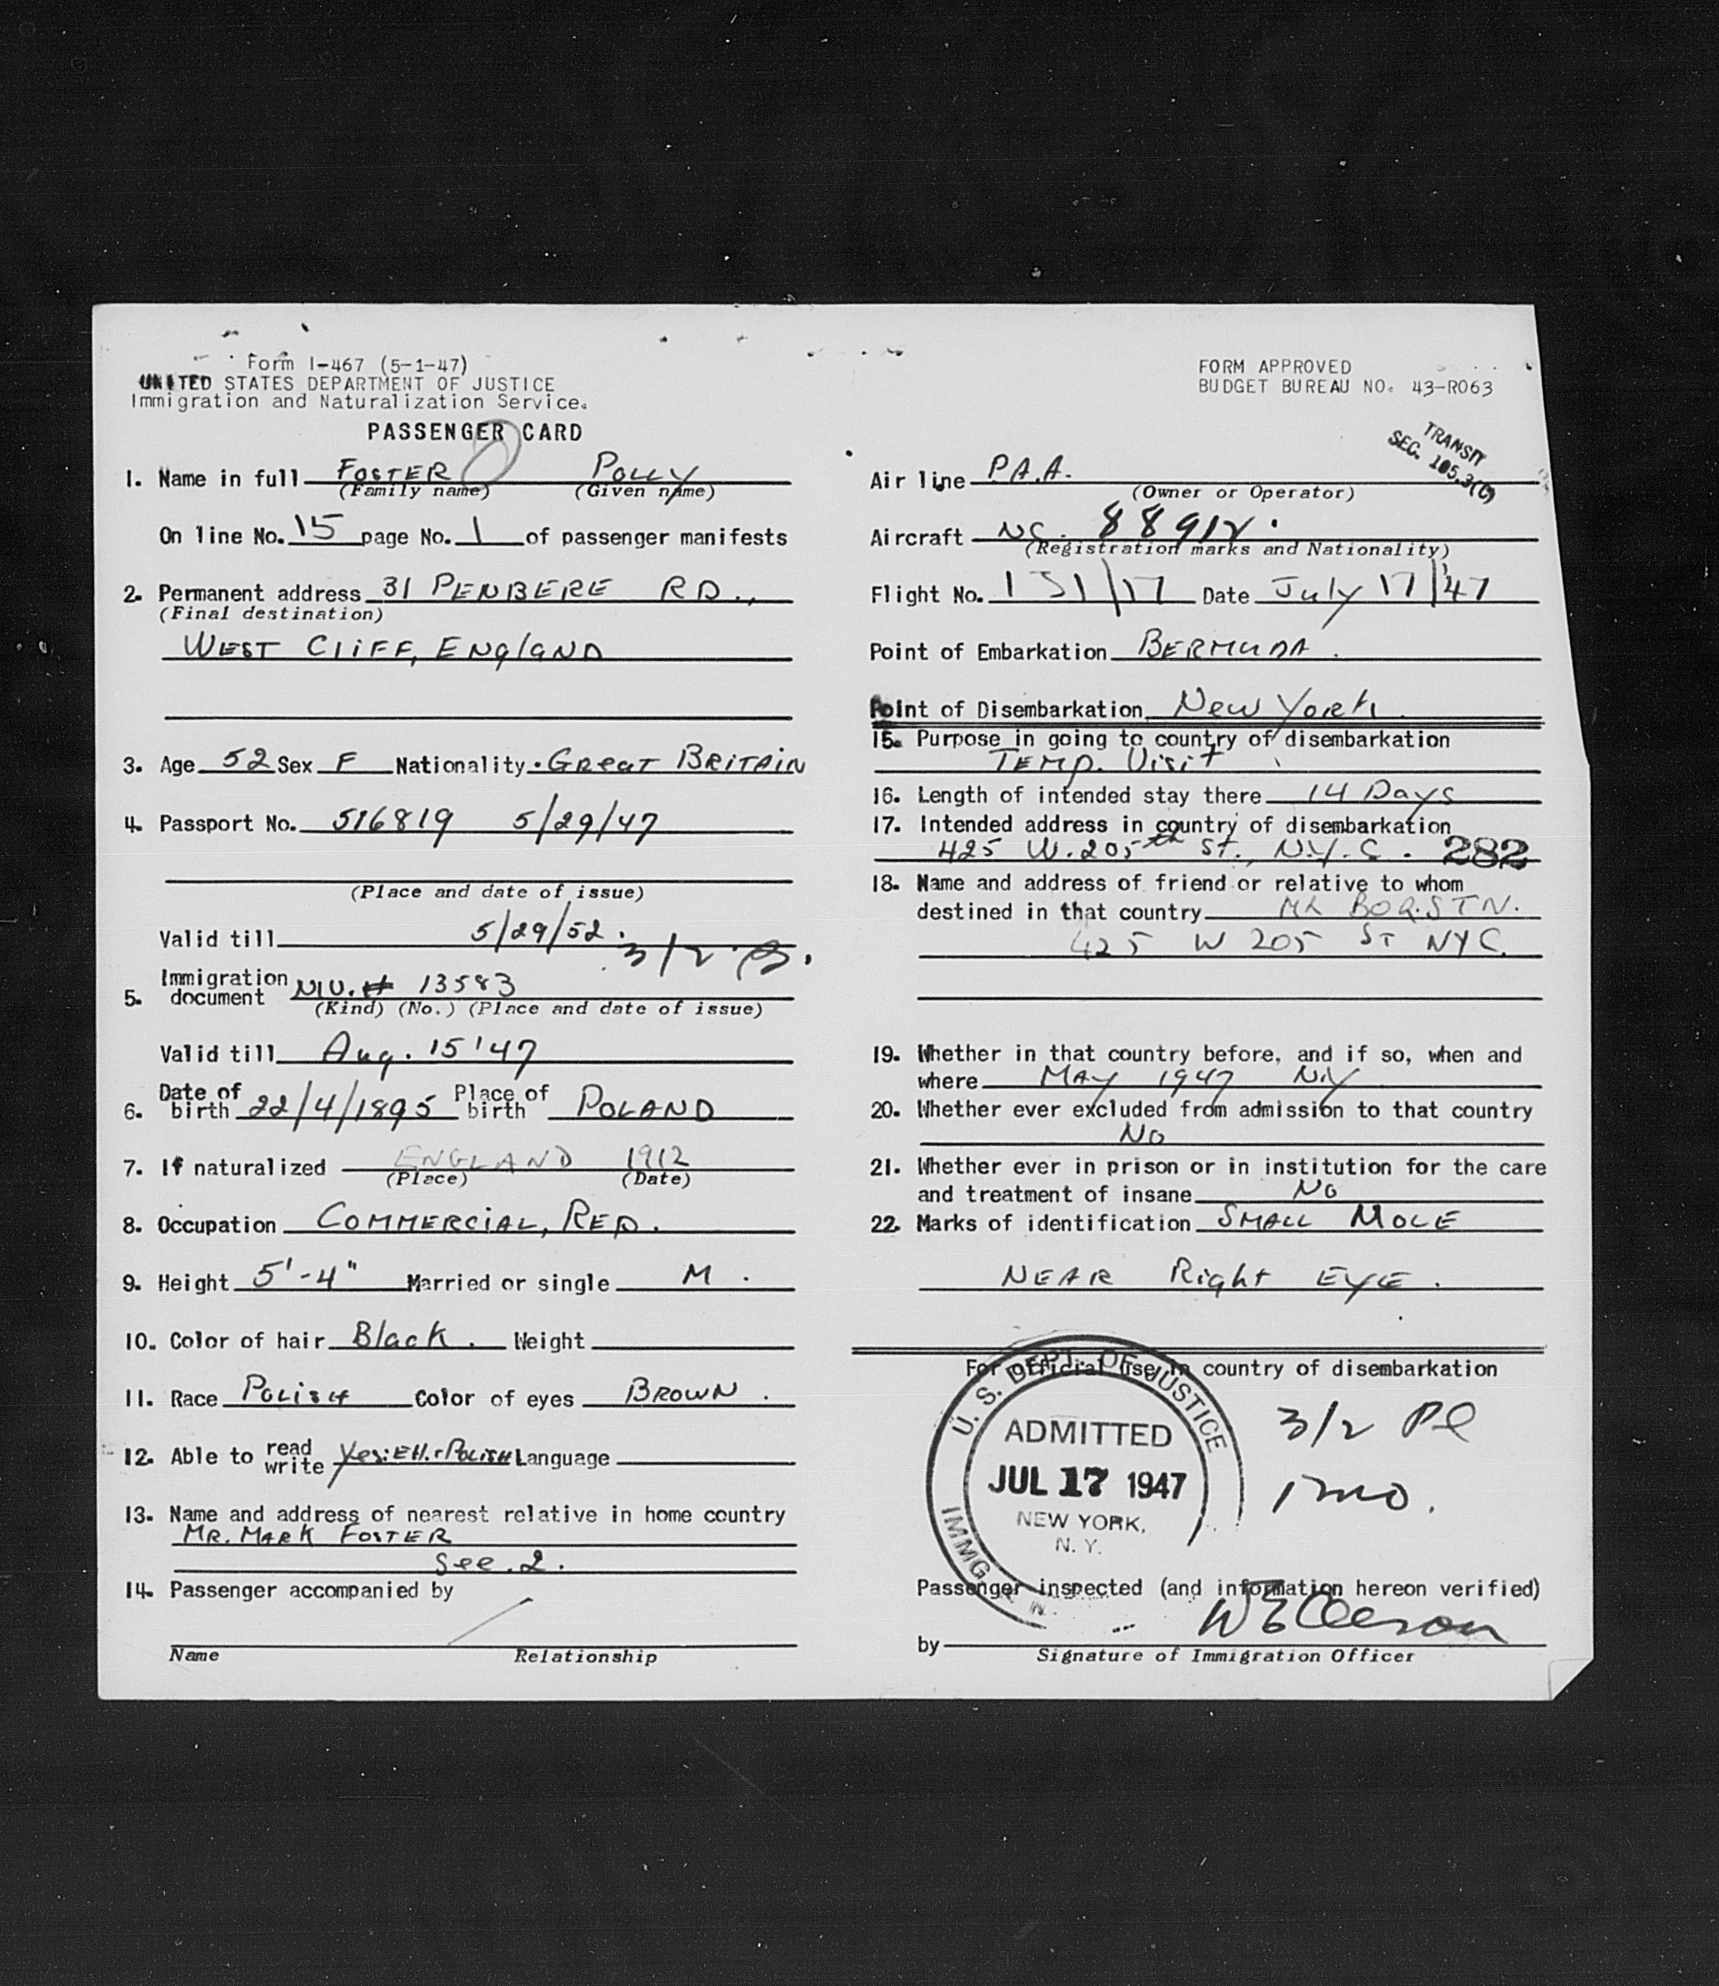 Form I-467 (5-1-47)
UNITED STATES DEPARTMENT OF JUSTICE
Immigration and Naturalization Service.
PASSENGER CARD
1. Name in full FOSTER POLLY
(Family name) (Given name)
On line No. 15 page No. 1 of passenger manifests
2. Permanent address 31 PENBERE RD.,
(Final destination)
WEST CLIFF, ENGLAND
3. Age 52 Sex F Nationality. GREAT BRITAIN
4. Passport No. 516819 5/29/47
(Place and date of issue)
Valid till 5/29/52.
3/2
5. Immigration document NIV. # 13583
(Kind) (No.) (Place and date of issue)
Valid till Aug. 15'47
6. Date of birth 22/4/1895 Place of birth POLAND
7. If naturalized ENGLAND 1912
(Place) (Date)
8. Occupation COMMERCIAL, REP.
9. Height 5'-4" Married or single M.
10. Color of hair Black. Weight
11. Race POLISH Color of eyes BROWN.
12. Able to read write Yes: EH. + POLISH Language
13. Name and address of nearest relative in home country
MR. MARK FOSTER
See. 2.
14. Passenger accompanied by
Name Relationship
FORM APPROVED
BUDGET BUREAU NO. 43-R063
TRANSIT
SEC. 105.3(C)
Air line P.A.A.
(Owner or Operator)
Aircraft NC. 88912.
(Registration marks and Nationality)
Flight No. 131/17 Date July 17/'47
Point of Embarkation BERMUDA.
Point of Disembarkation New York.
15. Purpose in going to country of disembarkation
TEMP. Visit
16. Length of intended stay there 14 Days
17. Intended address in country of disembarkation
425 W. 205th St., N.Y.C. 282
18. Name and address of friend or relative to whom
destined in that country MR BORSTN.
425 W 205 ST NYC.
19. Whether in that country before, and if so, when and
where MAY 1947 NY
20. Whether ever excluded from admission to that country
NO
21. Whether ever in prison or in institution for the care
and treatment of insane NO
22. Marks of identification SMALL MOLE
NEAR Right EYE.
For official use in country of disembarkation
U. S. DEPT. OF JUSTICE
ADMITTED
JUL 17 1947
NEW YORK,
N. Y.
IMMG
3/2 Pl
1 mo.
Passenger inspected (and information hereon verified)
by
Signature of Immigration Officer